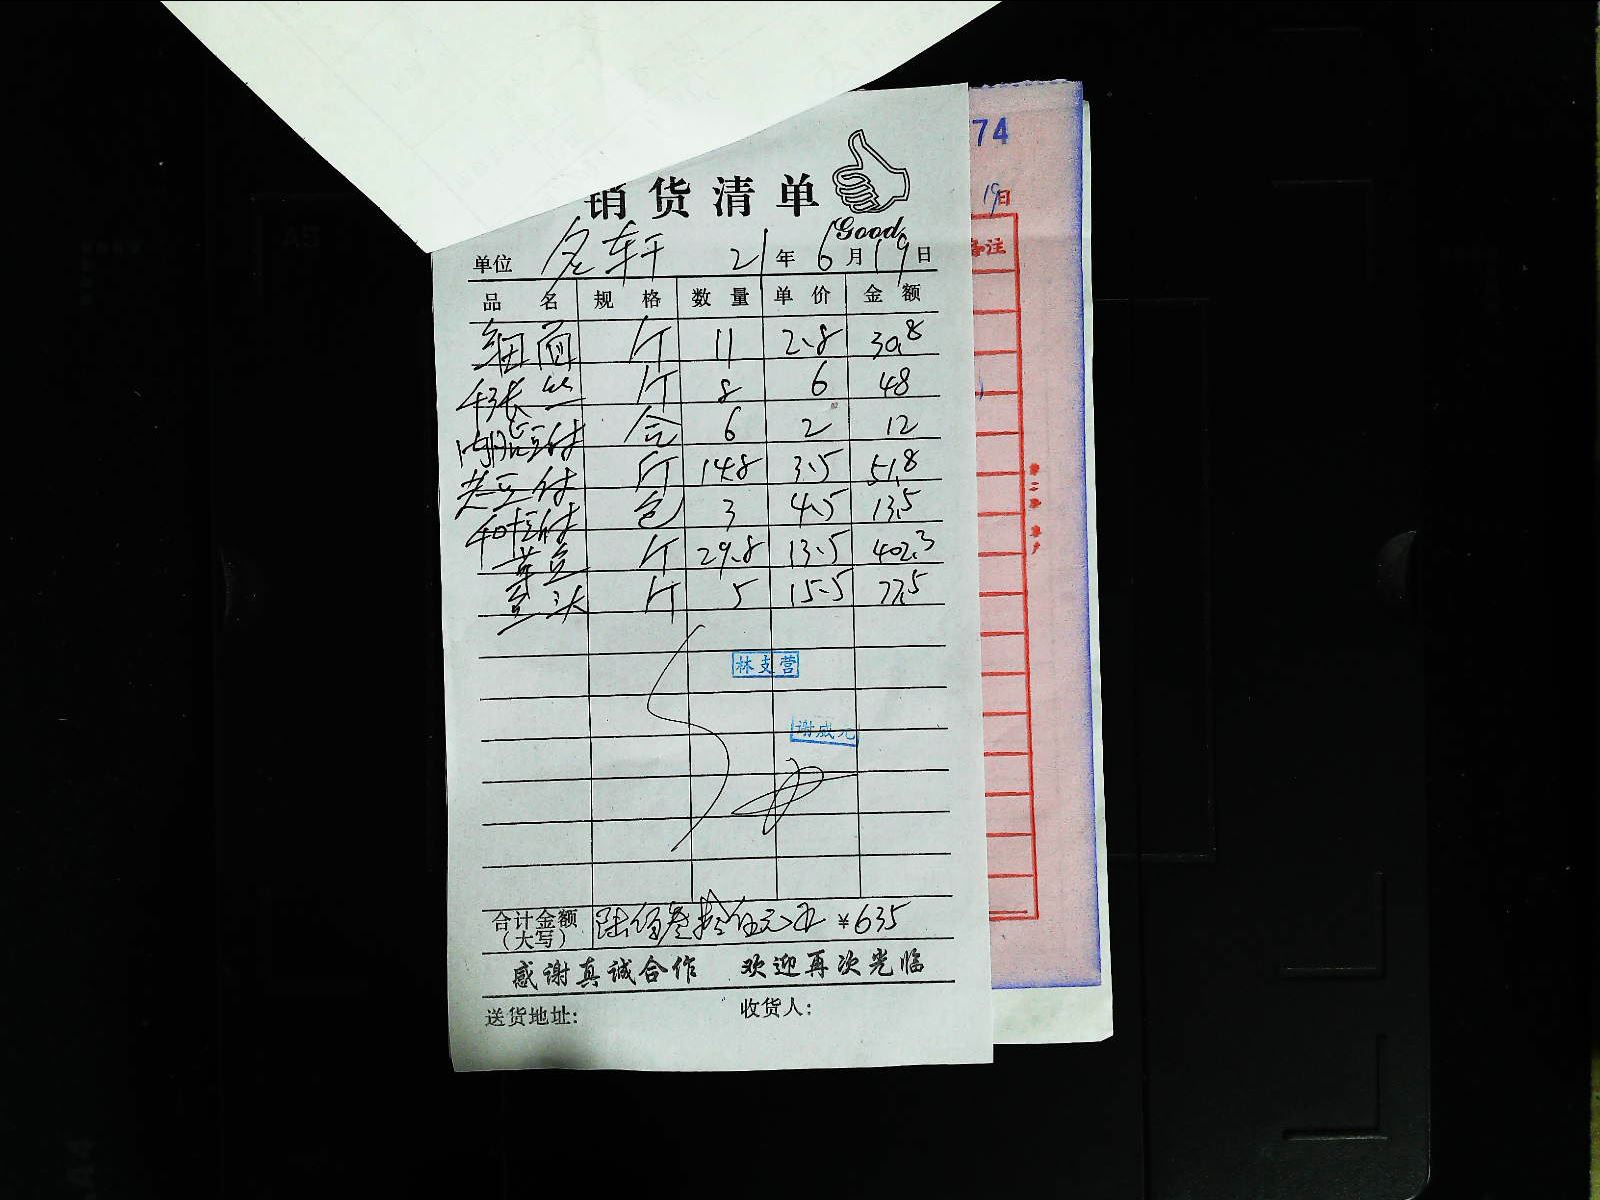 74
19日
备注
销货清单
Good
单位 名轩 21年6月19日
品名 规格 数量 单价 金额
细面 斤 11 2.8 30.8
千张丝 斤 8 6 48
内脂豆付 合 6 2 12
老豆付 斤 14.8 3.5 51.8
包 3 4.5 13.5
斤 29.8 13.5 402.3
斤 5 15.5 77.5
林支营
谢成元
合计金额（大写） 陆佰叁拾伍元正 ¥635
感谢真诚合作 欢迎再次光临
送货地址: 收货人: